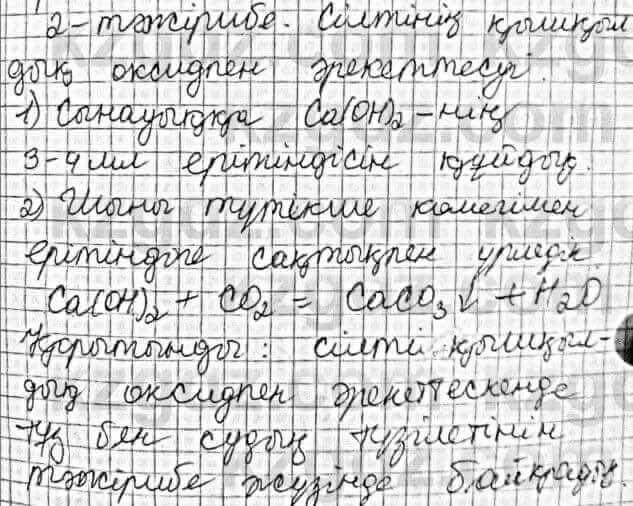 2-тәжірибе. Сілтінің қышқыл
дық оксидпен әрекеттесуі.
1) Сынауыққа Ca(OH)₂-нің
3-4 мл ерітіндісін құйдық.
2) Шыны түтікше көмегімен
ерітіндіге сақтықпен үрледік
Ca(OH)₂ + CO₂ = CaCO₃↓ + H₂O
Қорытынды: сілті қышқыл-
дық оксидпен әрекеттескенде
тұз бен судың түзілетінін
тәжірибе жүзінде байқадық.